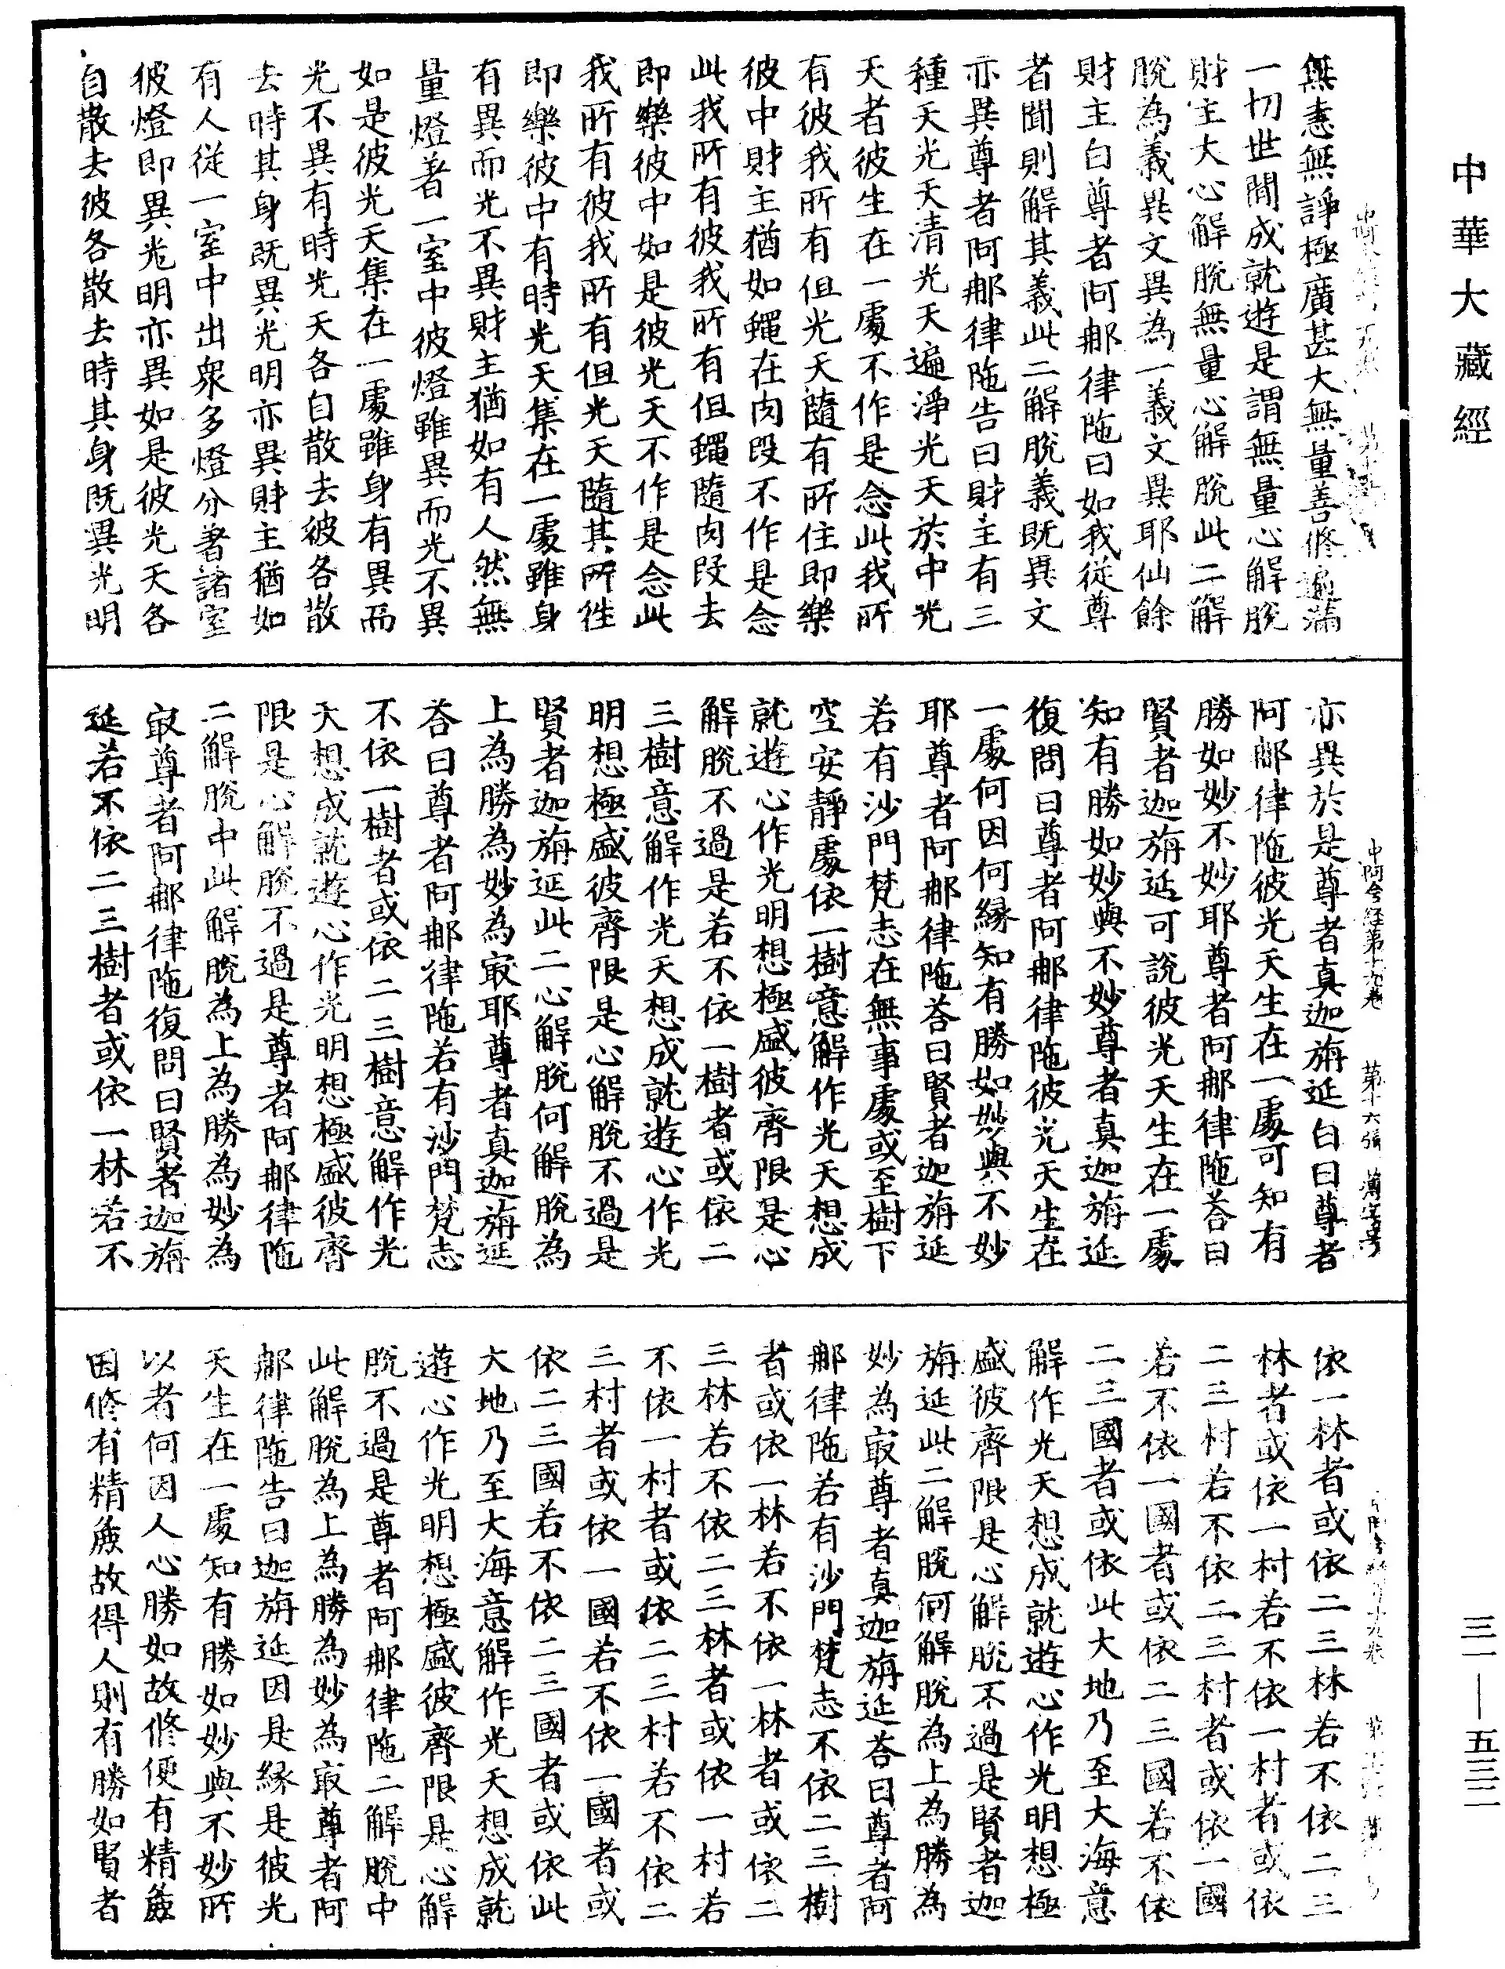 中華大藏經
無恚無諍極廣甚大無量善修遍滿
一切世間成就遊是謂無量心解脫
財主大心解脫無量心解脫此二解
脫為義異文異為一義文異耶仙餘
財主白尊者阿那律陁曰如我從尊
者聞則解其義此二解脫義既異文
亦異尊者阿那律陁告曰財主有三
種天光天清光天遍淨光天於中光
天者彼生在一處不作是念此我所
有彼我所有但光天隨有所住即樂
彼中財主猶如蠅在肉段不作是念
此我所有彼我所有但蠅隨肉段去
即樂彼中如是彼光天不作是念此
我所有彼我所有但光天隨其所往
即樂彼中有時光天集在一處雖身
有異而光不異財主猶如有人然無
量燈著一室中彼燈雖異而光不異
如是彼光天集在一處雖身有異而
光不異有時光天各自散去彼各散
去時其身既異光明亦異財主猶如
有人從一室中出眾多燈分著諸室
彼燈即異光明亦異如是彼光天各
自散去彼各散去時其身既異光明
中阿含經第十九卷　第十六張　薄字号
亦異於是尊者真迦旃延白曰尊者
阿那律陁彼光天生在一處可知有
勝如妙不妙耶尊者阿那律陁荅曰
賢者迦旃延可說彼光天生在一處
知有勝如妙與不妙尊者真迦旃延
復問曰尊者阿那律陁彼光天生在
一處何因何緣知有勝如妙與不妙
耶尊者阿那律陁荅曰賢者迦旃延
若有沙門梵志在無事處或至樹下
空安靜處依一樹意解作光天想成
就遊心作光明想極盛彼齊限是心
解脫不過是若不依一樹者或依二
三樹意解作光天想成就遊心作光
明想極盛彼齊限是心解脫不過是
賢者迦旃延此二心解脫何解脫為
上為勝為妙為㝡耶尊者真迦旃延
荅曰尊者阿那律陁若有沙門梵志
不依一樹者或依二三樹意解作光
天想成就遊心作光明想極盛彼齊
限是心解脫不過是尊者阿那律陁
二解脫中此解脫為上為勝為妙為
㝡尊者阿那律陁復問曰賢者迦旃
延若不依二三樹者或依一林若不
依一林者或依二三林若不依二三
林者或依一村若不依一村者或依
二三村若不依二三村者或依一國
若不依一國者或依二三國若不依
二三國者或依此大地乃至大海意
解作光天想成就遊心作光明想極
盛彼齊限是心解脫不過是賢者迦
旃延此二解脫何解脫為上為勝為
妙為㝡尊者真迦旃延荅曰尊者阿
那律陁若有沙門梵志不依二三樹
者或依一林若不依一林者或依二
三林若不依二三林者或依一村若
不依一村者或依二三村若不依二
三村者或依一國若不依一國者或
依二三國若不依二三國者或依此
大地乃至大海意解作光天想成就
遊心作光明想極盛彼齊限是心解
脫不過是尊者阿那律陁二解脫中
此解脫為上為勝為妙為㝡尊者阿
那律陁告曰迦旃延因是緣是彼光
天生在一處知有勝如妙與不妙所
以者何因人心勝如故修便有精麁
因修有精麁故得人則有勝如賢者
三一—五三二